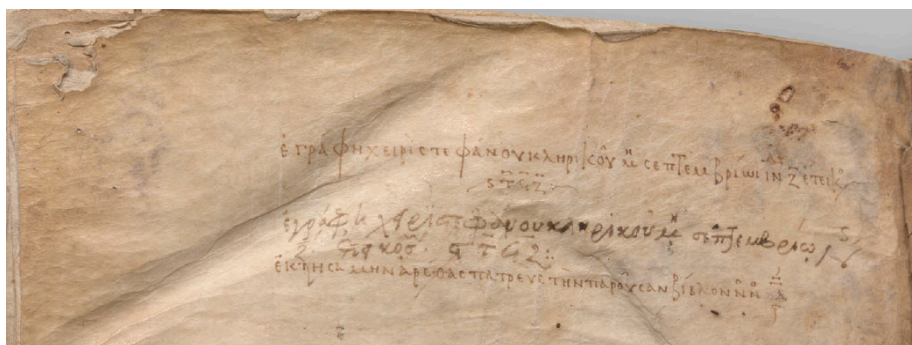 ἐγράφη χειρὶ στεφάνου κληρικοῦ μ σεπτεμβρίωι ἰν ζ ἔτει κο
ςτϟζ
ἐγράφη χειρὶ στεφάνου κληρικοῦ μ σεπτεμβρίω ἰν
κος ςτϟζ
ἐκτησάμην ἀρέθας πατρεὺς τὴν παροῦσαν βίβλον